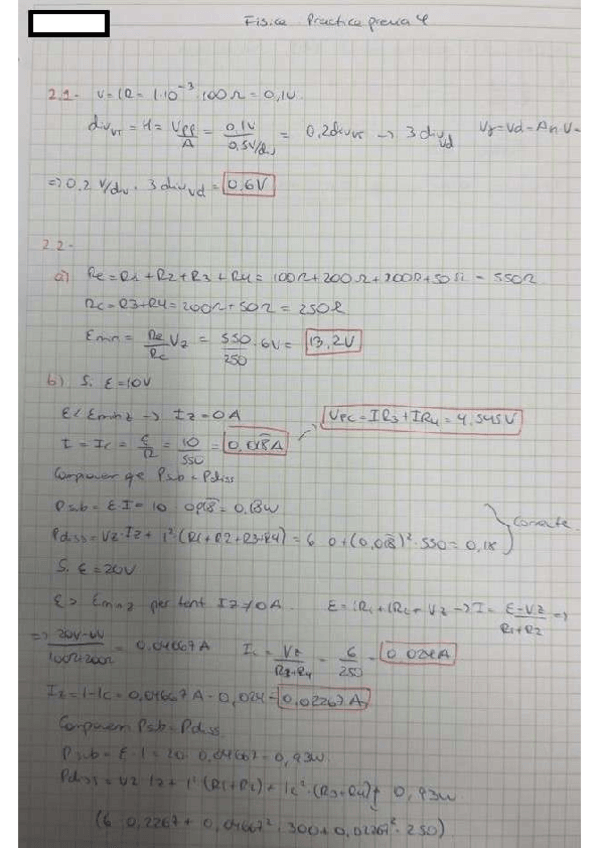 Física Practica previa 4
2.1- V=IR= 1·10⁻³ 100Ω = 0,1V.
div_VT = H = Vpp/A = 0,1V / 0,5V/div = 0.2 div_VT → 3 div_Vd Vy=Vd=An V-
=> 0.2 V/div · 3 div_Vd = 0.6V
2.2-
a) Re = R1+R2+R3+R4 = 100Ω+200Ω+200Ω+50Ω = 550Ω
Rc=R3+R4=200Ω+50Ω = 250Ω
Emin = Re/Rc Vz = 550/250 · 6V = 13,2V
b) S. ε=10V
ε<Eminz → Iz=0A Vpc=IR3+IR4=4.545V
I = Ic = ε/R = 10/550 = 0,018A
Comparem qe Psub=Pdiss
Psub= ε·I = 10 0,018 = 0.18W
Pdiss=Vz·Iz+ I²·(R1+R2+R3+R4) = 6 0+(0,018)²·550=0,18 Correcte.
S. ε=20V
ε> Eminz per tant Iz≠0A. ε=IR1+IR2+Vz → I= ε-Vz/R1+R2 =>
=> 20V-6V / 100Ω+200Ω = 0.04667A Ic = Vz/R3+R4 = 6/250 = 0.024A
Iz=I-Ic=0,04667A-0,024=0,02267A
Comparem Psub=Pdiss.
Psub= ε·I = 20 · 0,04667=0,93W
Pdiss=Vz·Iz+ I²·(R1+R2)+Ic²·(R3+R4) 0,93W
(6 0,2267+0,04667²·300+0,02267²·250)